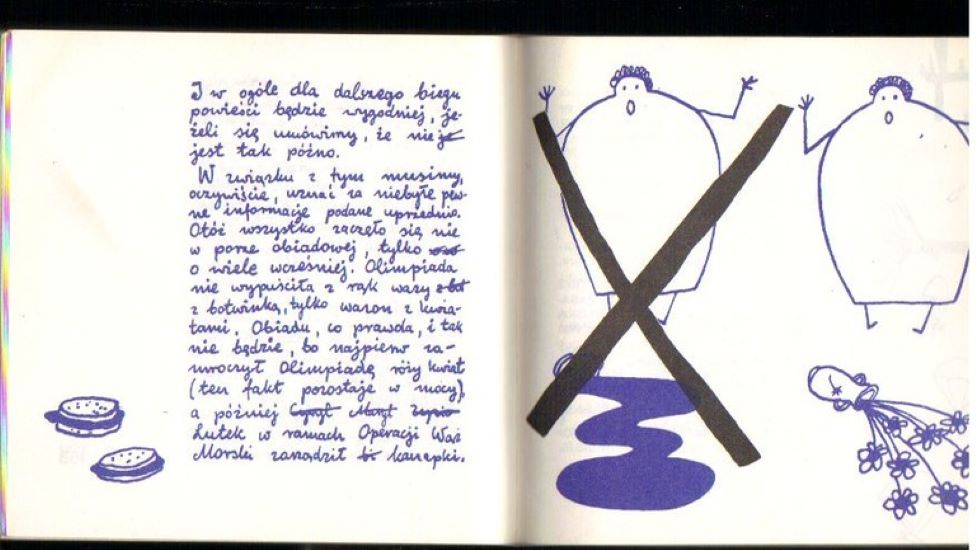 I w ogóle dla dalszego biegu
powieści będzie wygodniej, je-
żeli się umówimy, że nie je
jest tak późno.
W związku z tym musimy,
oczywiście, uznać za niebyłe pew-
ne informacje podane uprzednio.
Otóż wszystko zaczęło się nie
w porze obiadowej, tylko
o wiele wcześniej. Olimpiada
nie wypuściła z rąk wazy z bot
z botwinką, tylko wazon z kwia-
tami. Obiadu, co prawda, i tak
nie będzie, bo najpierw za-
uroczył Olimpiadę róży kwiat
(ten fakt pozostaje w mocy),
a później
Lutek w ramach Operacji Wąż
Morski zarządził kanapki.